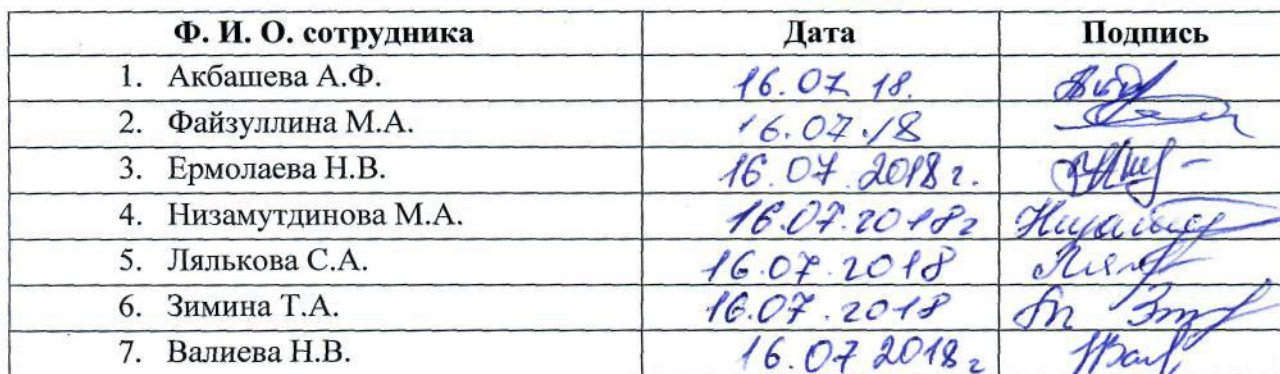 Ф. И. О. сотрудника Дата Подпись
1. Акбашева А.Ф. 16.07.18.
2. Файзуллина М.А. 16.07.18
3. Ермолаева Н.В. 16.07.2018 г.
4. Низамутдинова М.А. 16.07.2018г
5. Лялькова С.А. 16.07.2018
6. Зимина Т.А. 16.07.2018
7. Валиева Н.В. 16.07 2018г